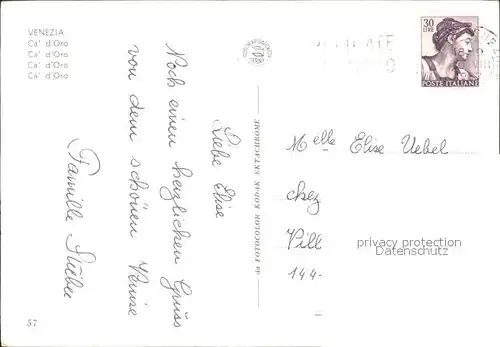 VENEZIA
Ca' d'Oro
Ca' d'Oro
Ca' d'Oro
Ca' d'Oro
Liebe Elise
Noch einen herzlichen Gruss
von dem schönen Venise
Familie
57
da FOTOCOLOR KODAK EKTACHROME
30
LIRE
POSTE ITALIANE
Melle Elise Uebel
chez
Vill
144-
privacy protection
Datenschutz